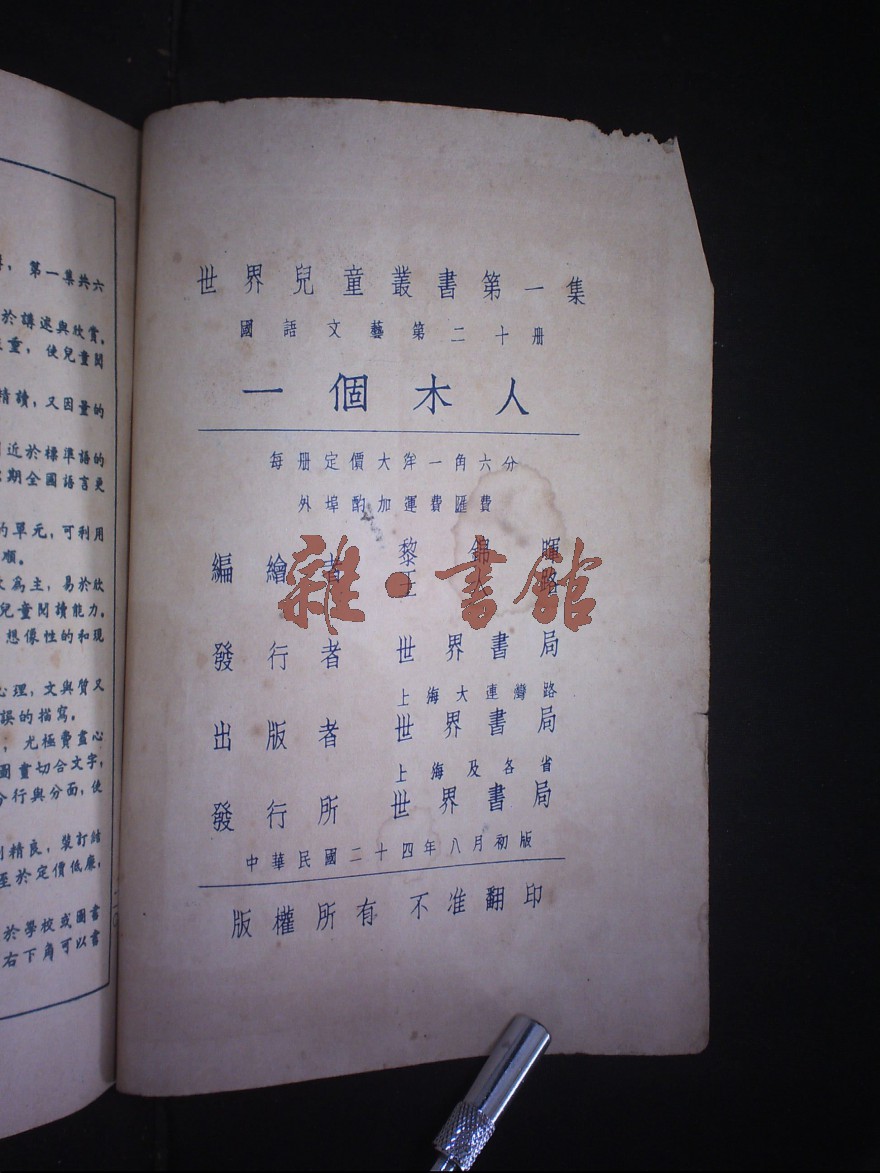 ，第一集共六
於講述與欣賞。
重，使兒童閱
精讀，又因量的
近於標準語的
期全國語言更
的單元，可利用
順。
文爲主，易於欣
兒童閱讀能力。
想像性的和現
心理，文與質又
誤的描寫。
，尤極費盡心
圖畫切合文字，
分行與分面，使
刷精良，裝訂結
至於定價低廉，
於學校或圖書
右下角可以書
世界兒童叢書第一集
國語文藝第二十册
一個木人
每册定價大洋一角六分
外埠酌加運費匯費
編繪者 黎錦暉
王人路
雜·書館
發行者 世界書局
上海大連灣路
出版者 世界書局
上海及各省
發行所 世界書局
中華民國二十四年八月初版
版權所有 不准翻印